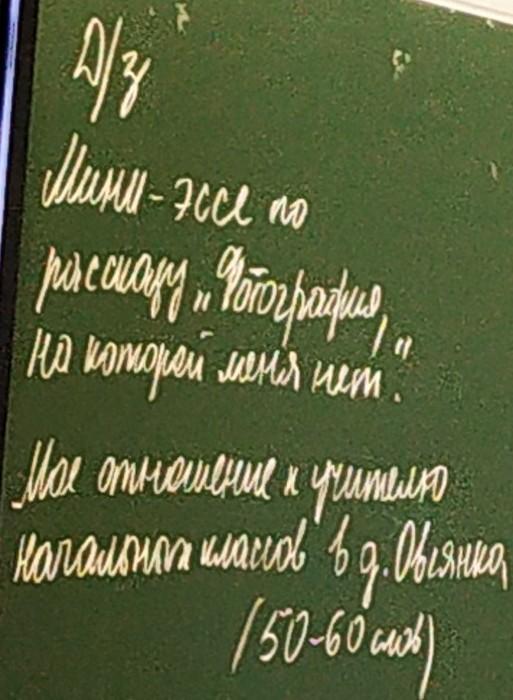 Д/з
Мини-эссе по
рассказу „Фотография,
на которой меня нет".
Мое отношение к учителю
начальных классов в д. Овсянка
(50-60 слов)